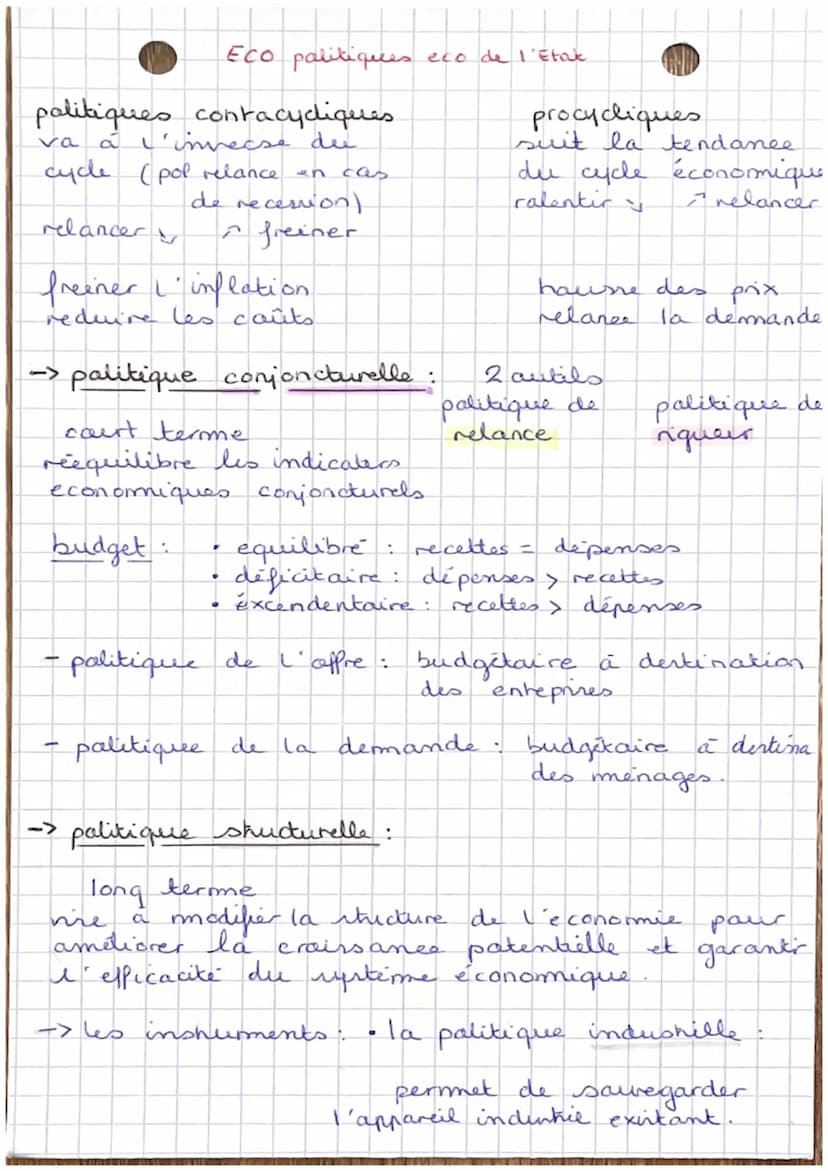 ECO politiques eco de l'Etat
politiques contacycliques
va à l'inverse du
cycle (pol relance en cas
de recession)
relancer ↘ ↗ freiner
freiner l'inflation
reduire les coûts
procycliques
suit la tendance
du cycle économique
ralentir ↘ ↗ relancer
hausse des prix
relance la demande
-> politique conjoncturelle : 2 outils
politique de relance
politique de rigueur
court terme
réequilibre les indicaters
economiques conjoncturels
budget : • equilibré : recettes = dépenses
• déficitaire : dépenses > recettes
• éxcendentaire : recettes > dépenses
- politique de l'offre : budgétaire à destination
des enteprises
- politique de la demande : budgétaire à destina
des ménages.
-> politique structurelle :
long terme
vise à modifier la structure de l'economie pour
améliorer la croissance potentielle et garantir
l'efficacité du système économique.
-> les instruments : • la politique industrille :
permet de sauvegarder
l'appareil industrie existant.